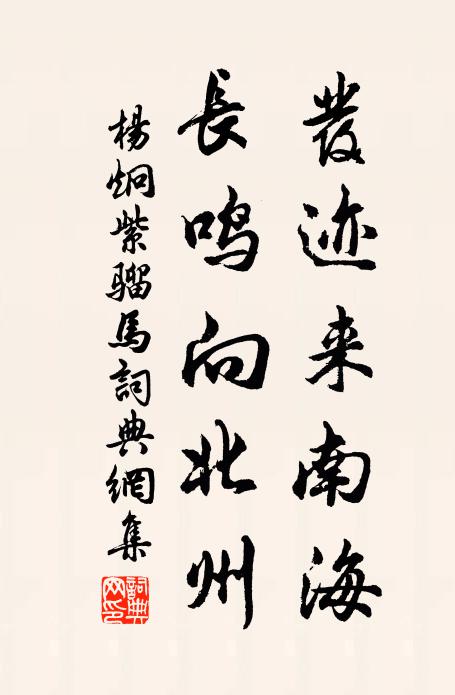 發迹来南海
長鸣向北州
楊炯紫騮馬詞典網集
詞典
网印